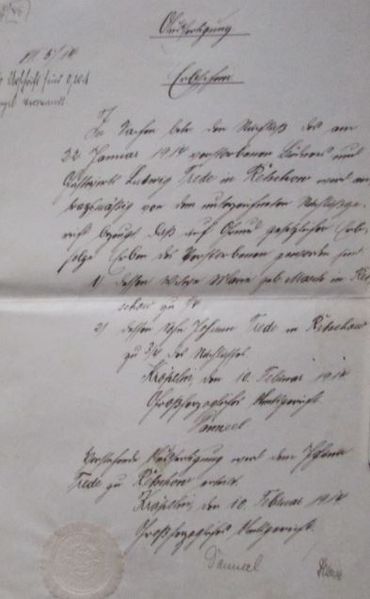 Ausfertigung
Erbschein
In Sachen betr. den Nachlaß des am
22. Januar 1914 verstorbenen Büdners und
Gastwirts Ludwig Trede in Retschow wird an
tragsmäßig von dem unterzeichneten Nachlaßge-
richt bezeugt, daß auf Grund gesetzlicher Erb-
folge Erben des Verstorbenen geworden sind
1) dessen Witwe Marie geb. in Ret
schow zu 1/4
2) dessen Sohn Johann Trede in Retschow
zu 3/4 des Nachlasses.
Kröpelin, den 10. Februar 1914
Großherzogliches Amtsgericht.
Vorstehende Ausfertigung wird dem Johann
Trede zu Retschow erteilt.
Kröpelin, den 10. Februar 1914
Großherzogliches Amtsgericht.